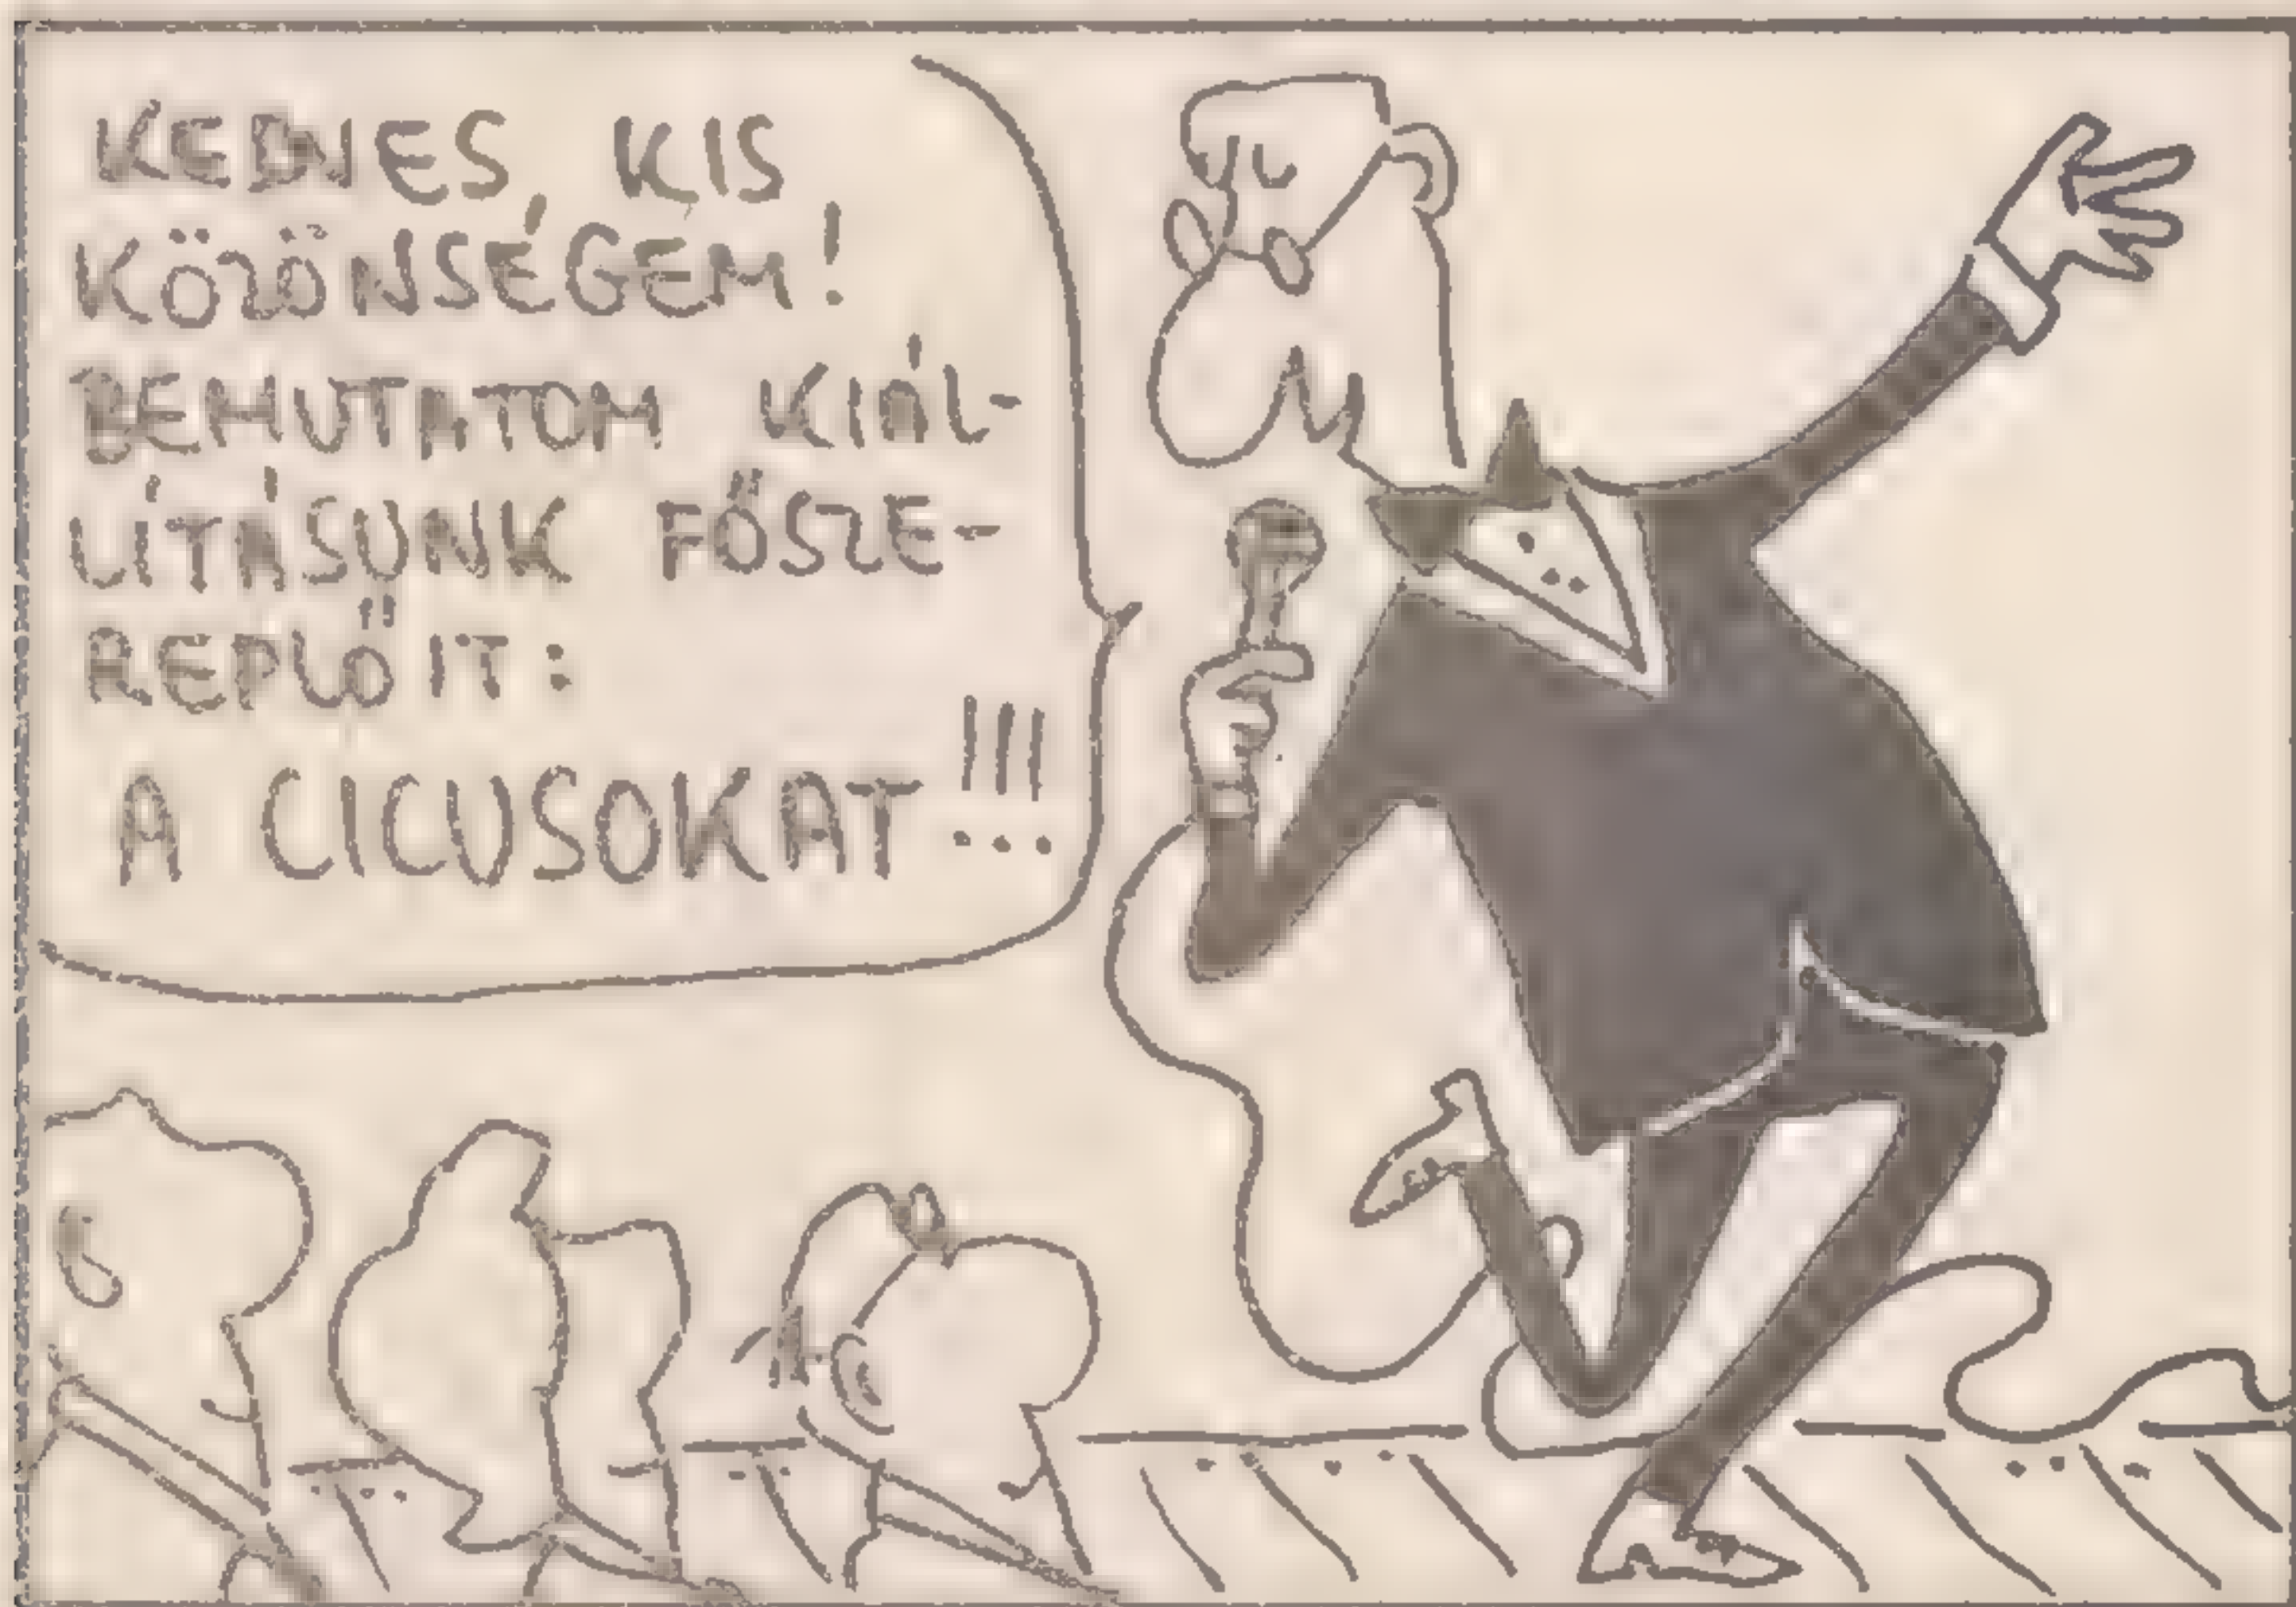 KEDVES KIS
KÖZÖNSÉGEM!
BEMUTATOM KIÁL-
LÍTÁSUNK FŐSZE-
REPLŐIT:
A CICUSOKAT!!!